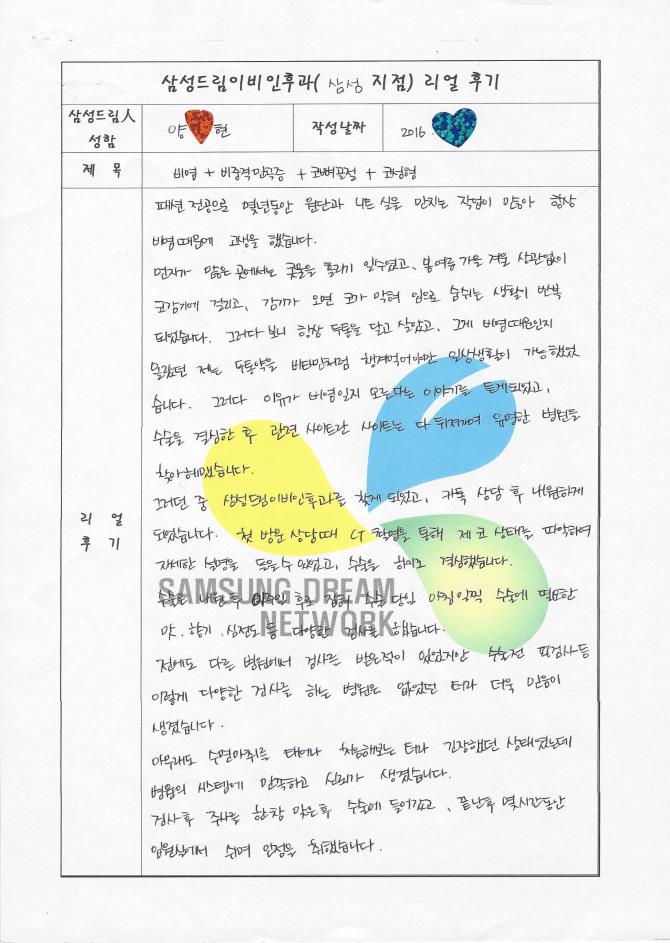 삼성드림이비인후과( 삼성 지점) 리얼 후기
삼성드림人
성함
양 현
작성날짜
2016.
제 목
비염 + 비중격만곡증 + 코뼈골절 + 코성형
리 얼
후 기
패션 전공으로 몇년동안 원단과 니트 실을 만지는 작업이 많아 항상
비염때문에 고생을 했습니다.
먼지가 많은 곳에서는 콧물을 흘리기 일수였고, 봄여름 가을 겨울 상관없이
코감기에 걸리고, 감기가 오면 코가 막혀 입으로 숨쉬는 생활이 반복
되었습니다. 그러다 보니 항상 두통을 달고 살았고, 그게 비염때문인지
몰랐던 저는 두통약을 비타민처럼 챙겨먹어야만 일상생활이 가능했었
습니다. 그러다 이유가 비염일지 모른다는 이야기를 듣게되었고,
수술을 결심한 후 관련 사이트란 사이트는 다 뒤져가며 유명한 병원들
찾아헤맸습니다.
그러던 중 삼성드림이비인후과를 찾게 되었고, 카톡 상담 후 내원하게
되었습니다. 첫 방문 상담때 CT 촬영을 통해 제 코 상태를 파악하여
자세한 설명을 들을 수 있었고, 수술을 하기로 결심했습니다.
수술은 내원 후 2주일 후로 잡혀 수술 당일 아침일찍 수술에 필요한
맛, 향기, 심전도 등 다양한 검사를 했습니다.
SAMSUNG DREAM
NETWORK
전에도 다른 병원에서 검사를 받은적이 있었지만 수술전 피검사등
이렇게 다양한 검사를 하는 병원은 없었던 터라 더욱 믿음이
생겼습니다.
아무래도 수면마취를 태어나 처음해보는 터라 긴장했던 상태였는데
병원의 시스템에 만족하고 신뢰가 생겼습니다.
검사후 주사를 한창 맞은후 수술에 들어갔고, 끝난후 몇시간동안
입원실에서 쉬며 안정을 취했습니다.